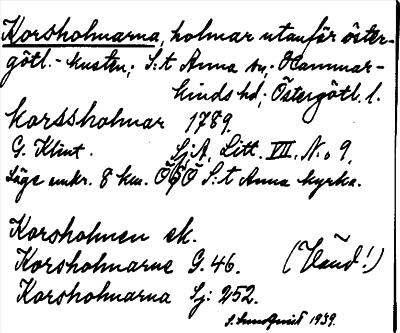 Korsholmarna, holmar utanför öster-
götl.-kusten; S:t Anna sn; Hammar-
kinds hd; Östergötl. l.
Korssholmar 1789.
G. Klint. SjA, Litt. VII. N:o 9.
Läge omkr. 8 km. ÖSÖ S:t Anna kyrka.
Korsholmen ek.
Korsholmarne G. 46. (Vänd!)
Korsholmarna Sj: 252.
S. Sundqvist 1939.